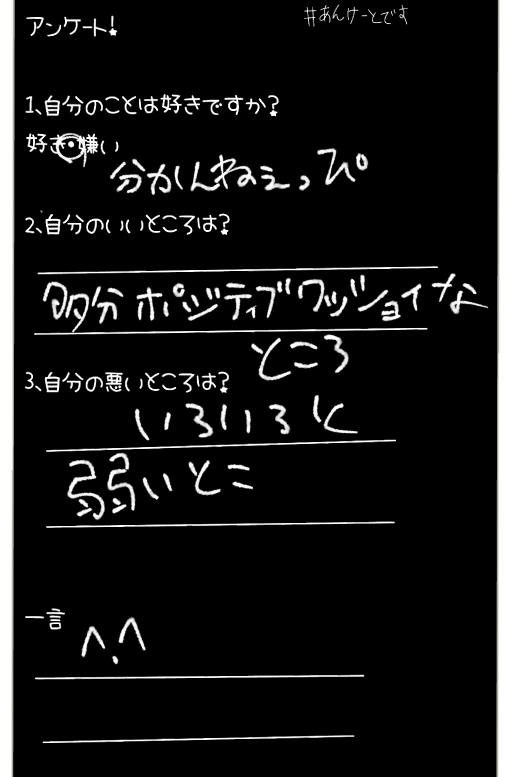 アンケート!
#あんけーとです
1、自分のことは好きですか?
好き・嫌い
分かんねえっぴ
2、自分のいいところは?
多分ポジティブワッショイな
ところ
3、自分の悪いところは?
いろいろと
弱いとこ
一言
^.^